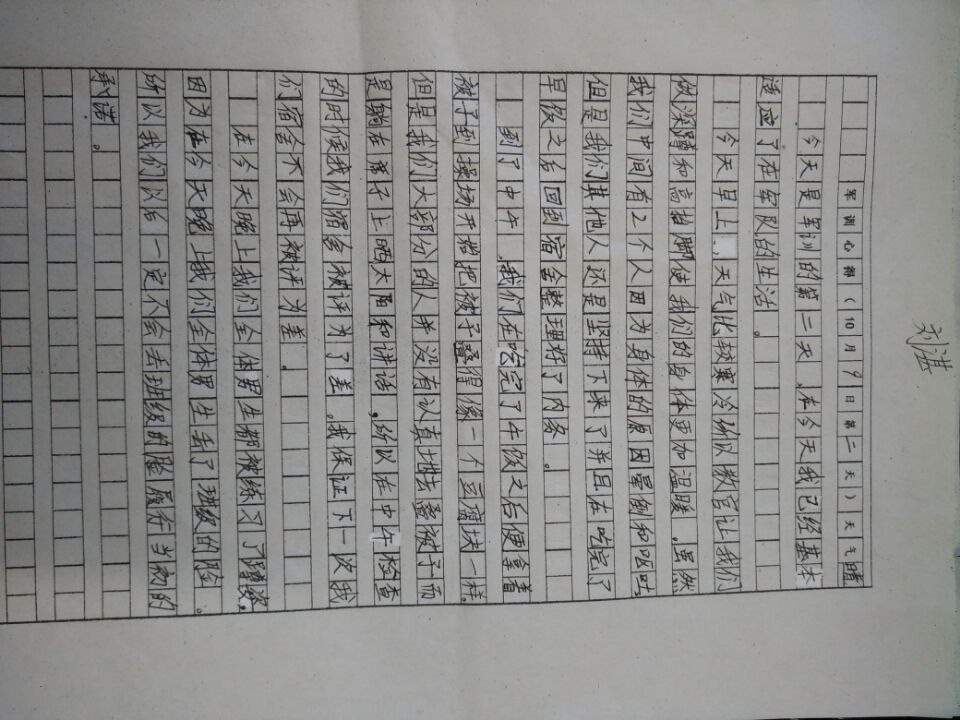 军训心得(10月9日第二天)天气晴
今天是军训的第二天,在今天我已经基本
适应了在军队的生活。
今天早上,天气比较寒冷所以教官让我们
做深蹲和高抬脚使我们的身体更加温暖,虽然
我们中间有2个人因为身体的原因晕倒和呕吐,
但是我们其他人还是坚持下来了并且在吃完了
早饭之后回到宿舍整理好了内务。
到了中午,我们在吃完了午饭之后便拿着
被子到操场开始把被子叠得像一个豆腐块一样,
但是我们大部分的人并没有认真地去叠被子而
是躺在席子上晒太阳和讲话,所以在中午检查
的时候我们宿舍被评为了差,我保证下一次我
们宿舍不会再被评为差。
在今天晚上我们全体男生都被练习了蹲姿,
因为在今天晚上我们全体男生丢了班级的脸。
所以我们以后一定不会丢班级的脸履行当初的
承诺。